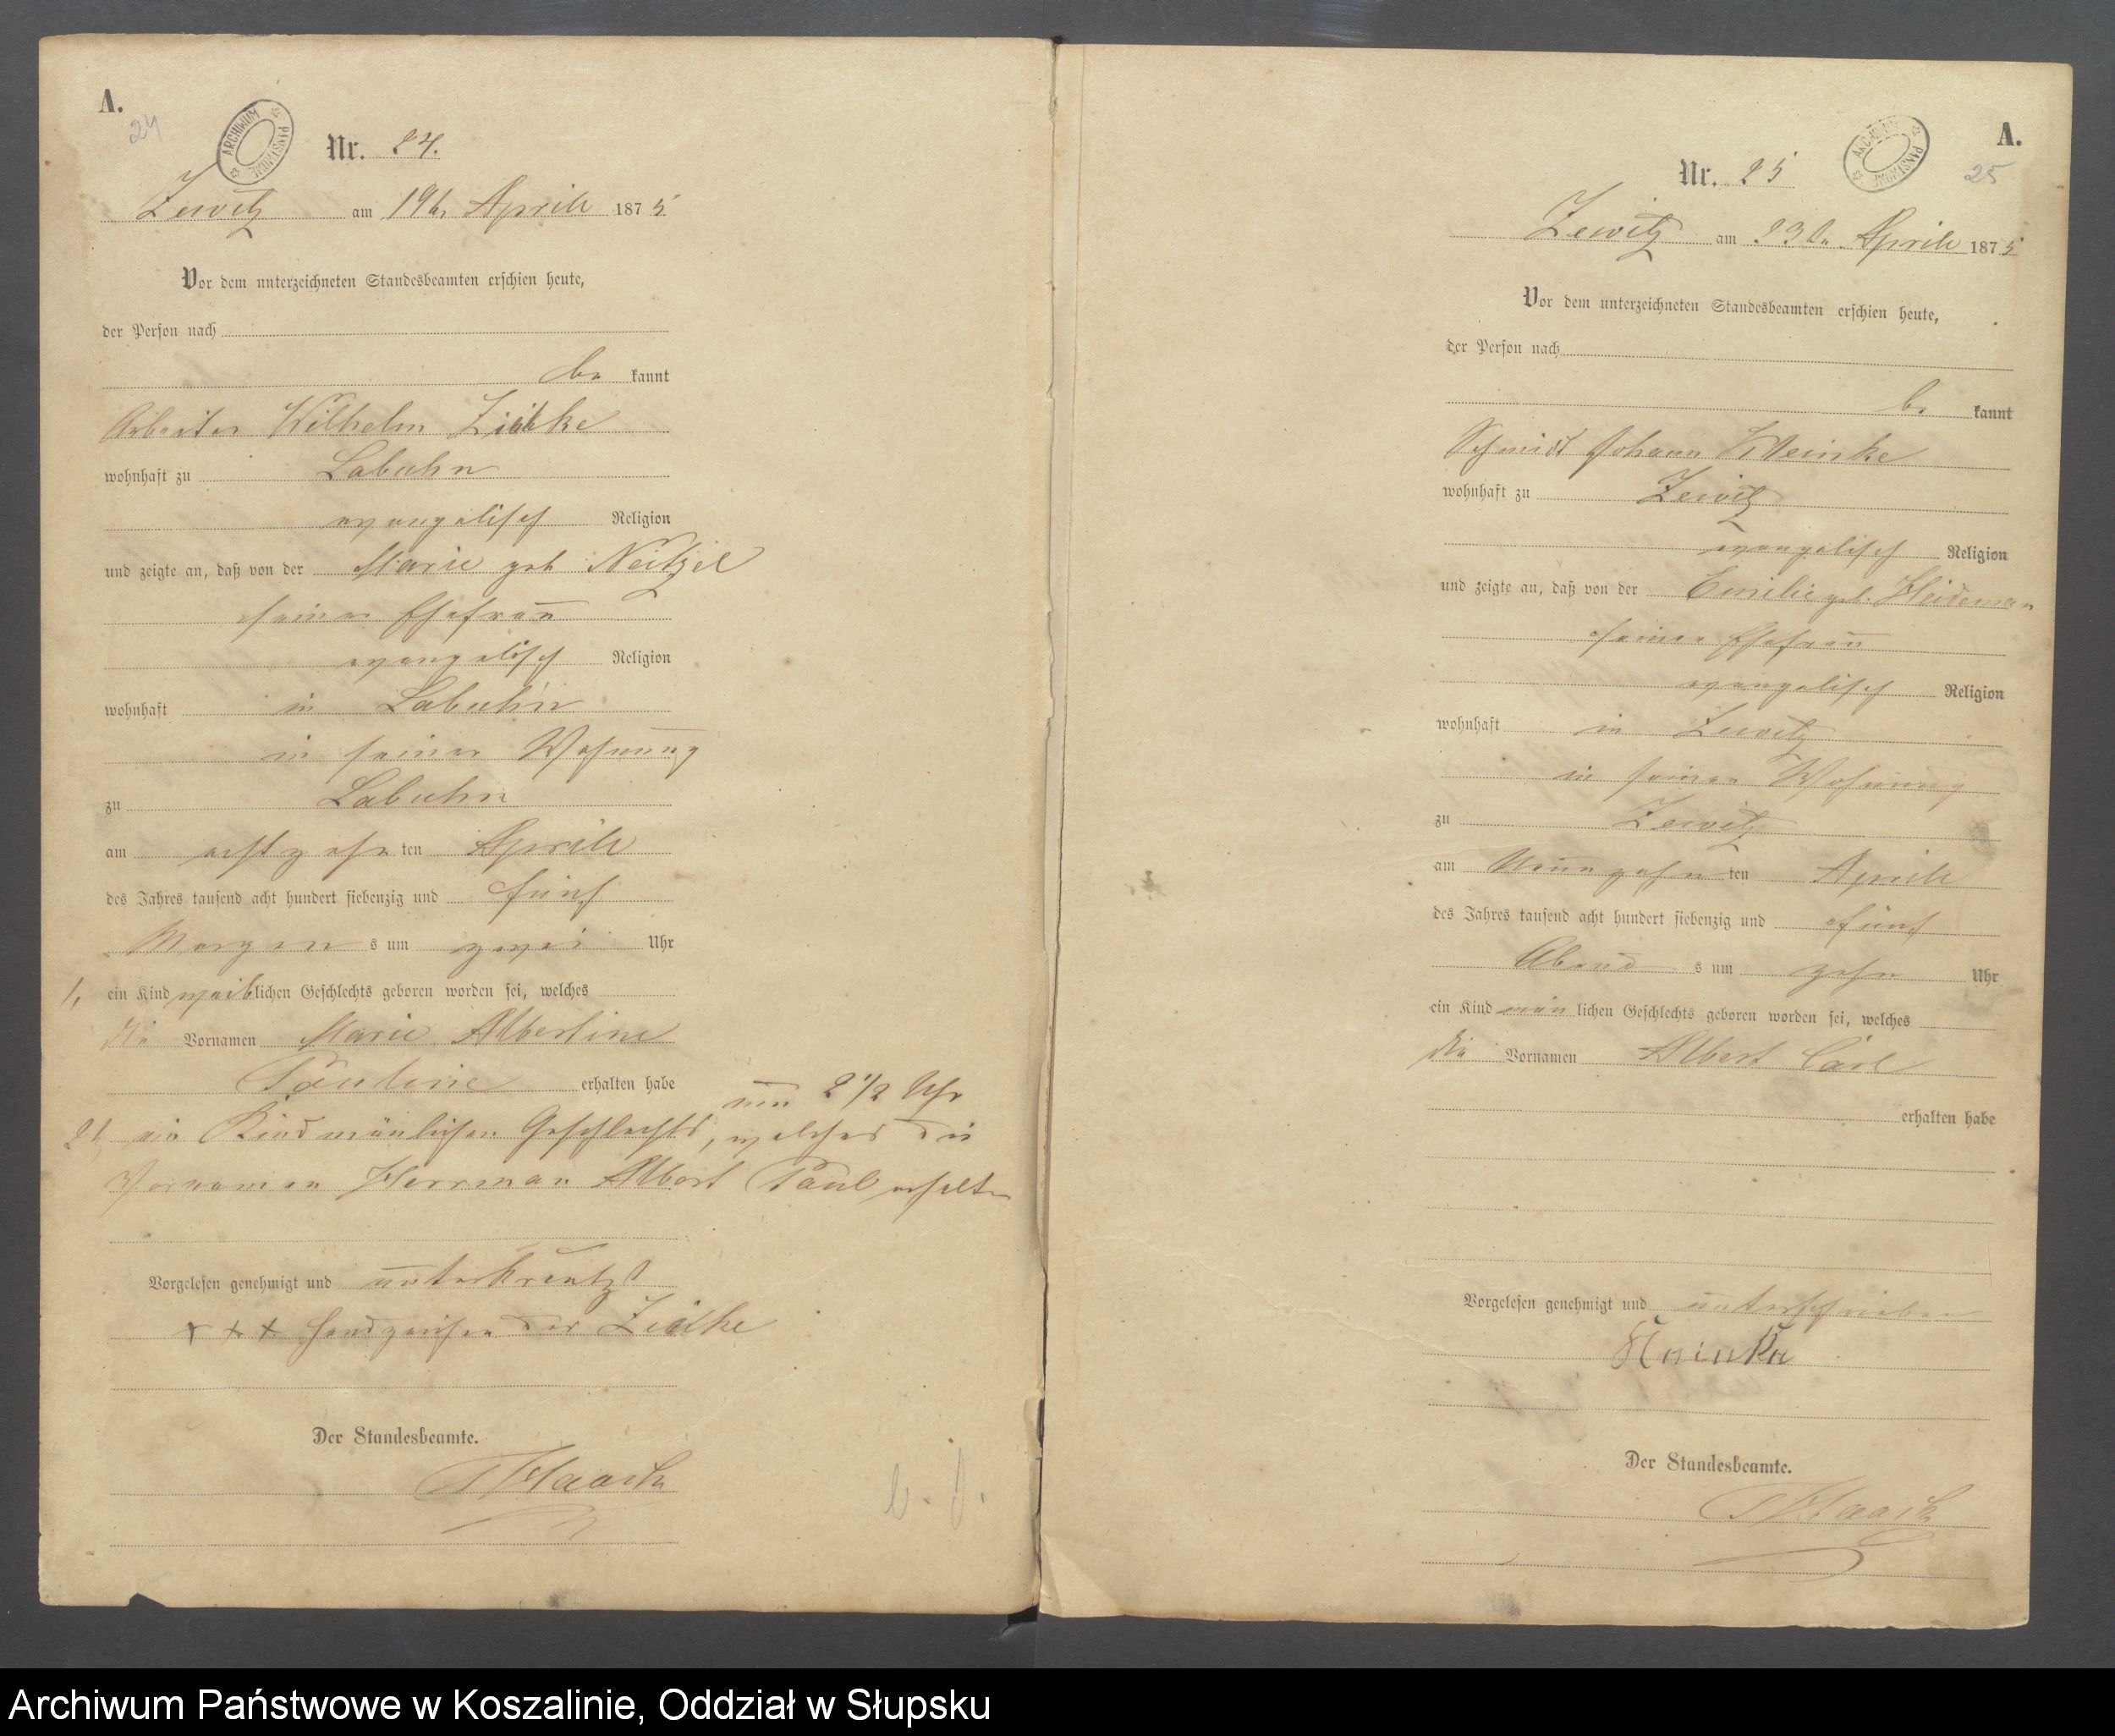 A.
24
ARCHIWUM PAŃSTWOWE
Nr. 24.
Zewitz am 19t. Aprill 1875
Vor dem unterzeichneten Standesbeamten erschien heute,
der Person nach
be kannt
Arbeiter Wilhelm
wohnhaft zu Labuhn
evangelisch Religion
und zeigte an, daß von der Marie geb Neitzel
seiner Ehefrau
evangelisch Religion
wohnhaft in Labuhn
in seiner Wohnung
zu Labuhn
am achtzehn ten Aprill
des Jahres tausend acht hundert siebenzig und fünf
Morgen s um zwei Uhr
1, ein Kind weiblichen Geschlechts geboren worden sei, welches
die Vornamen Marie Albertine
Pauline erhalten habe
um 2 1/2 Uhr
2, ein Kind mänlichen Geschlechts, welches die
Vornamen Herrman Albert Paul erhalten
Vorgelesen genehmigt und unterkreutzt
+ + + Handzeichen der
Der Standesbeamte.
b. d.
A.
25
ARCHIWUM PAŃSTWOWE
Nr. 25
Zewitz am 23t. Aprill 1875
Vor dem unterzeichneten Standesbeamten erschien heute,
der Person nach
be kannt
Schmidt Johann
wohnhaft zu Zewitz
evangelisch Religion
und zeigte an, daß von der Emilie geb. Heideman
seiner Ehefrau
evangelisch Religion
wohnhaft in Zewitz
in seiner Wohnung
zu Zewitz
am Neunzehn ten Aprill
des Jahres tausend acht hundert siebenzig und fünf
Abend s um zehn Uhr
ein Kind män lichen Geschlechts geboren worden sei, welches
die Vornamen Albert Carl
erhalten habe
Vorgelesen genehmigt und unterschrieben
Der Standesbeamte.
Archiwum Państwowe w Koszalinie, Oddział w Słupsku